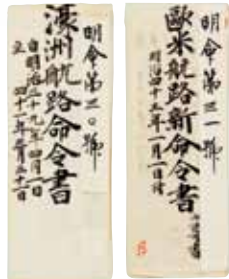 明令第三一號
歐米航路新命令書
明治四十三年一月一日ヨリ
明令第三〇號
濠洲航路命令書
自明治三十九年四月一日
至四十一年三月三十一日